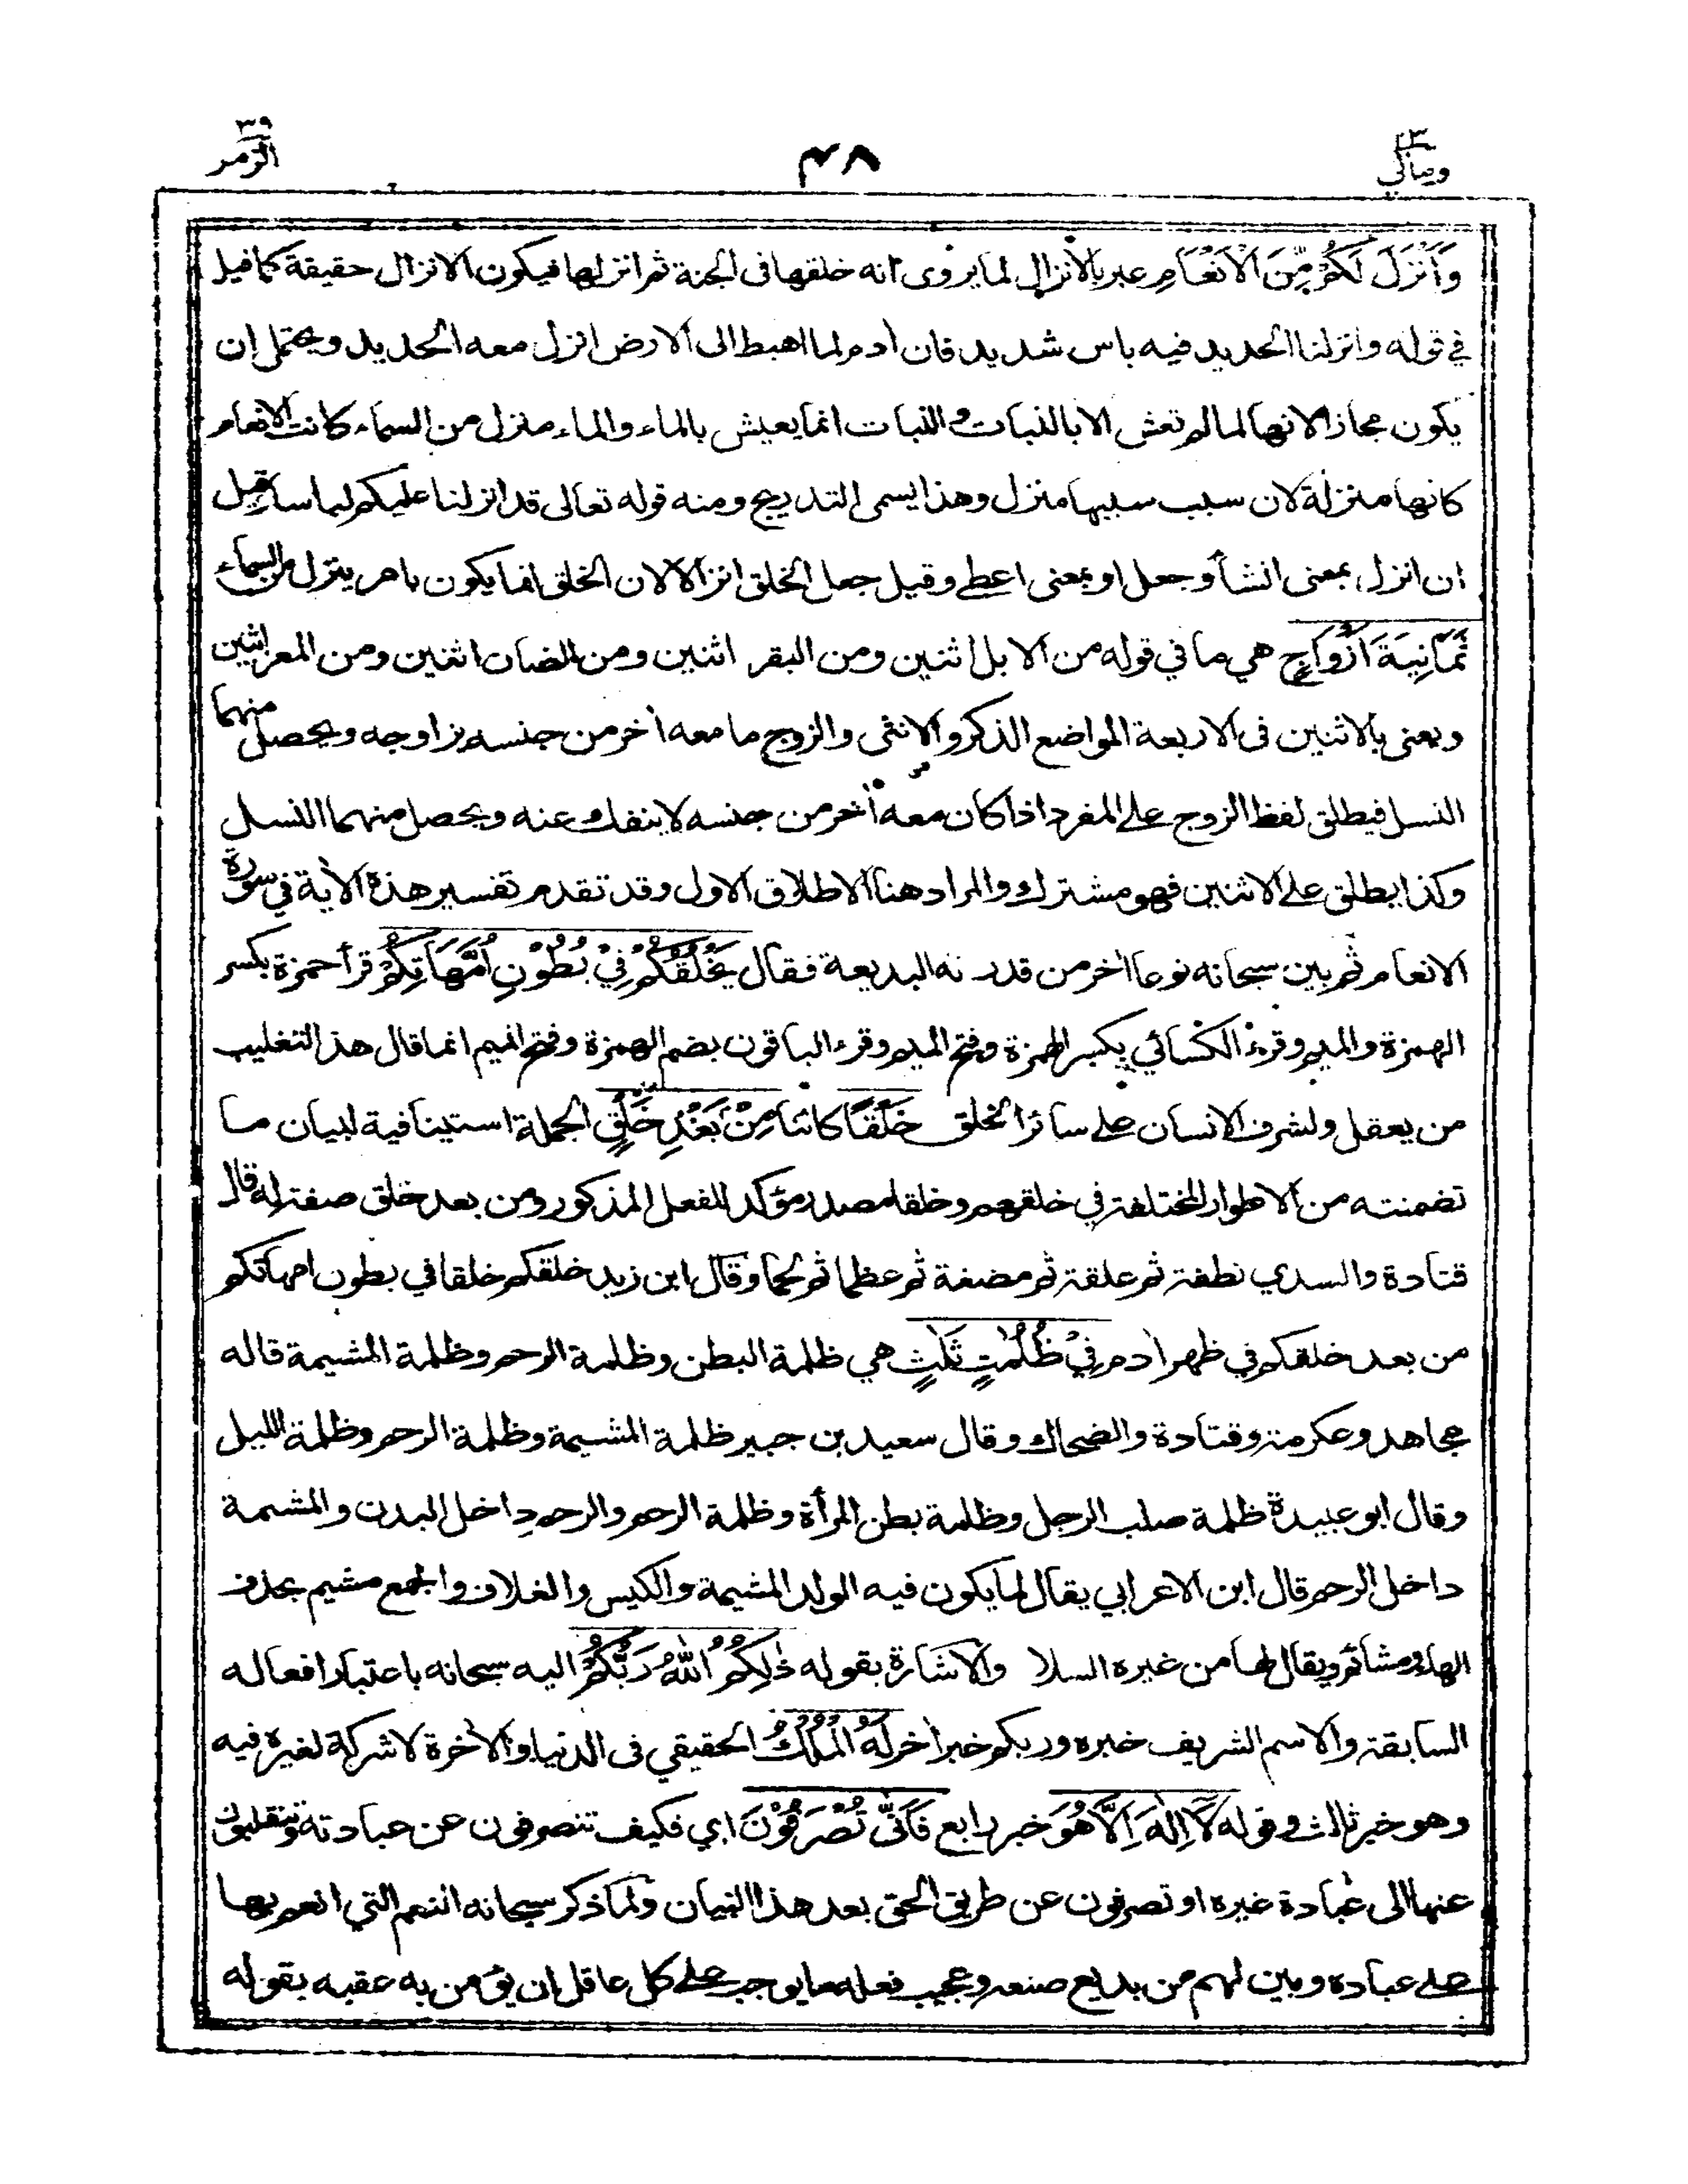 ٢٣ ومالي
٤٨
٣٩ الزمر
وَاَنْزَلَ لَكُمْ مِّنَ الْاَنْعَامِ عبر بالانزال لما يروى انه خلقها فى الجنة ثم انزلها فيكون الانزال حقيقة كما قيل
في قوله وانزلنا الحديد فيه باس شديد فان اٰدم لما اهبط الى الارض انزل معه الحديد ويحتمل ان
يكون مجازا لانها لما لم تعش الا بالنبات والنبات انما يعيش بالماء والماء منزل من السماء كانت الانعام
كانها منزلة لان سبب سببها منزل وهذا يسمى التدريج ومنه قوله تعالى قد انزلنا عليكم لباسا وقيل
ان انزل بمعنى انشأ وجعل او بمعنى اعطى وقيل جعل الخلق انزالا لان الخلق انما يكون بامر ينزل من السماء
ثَمَانِيَةَ اَزْوَاجٍ هي ما في قوله من الابل اثنين ومن البقر اثنين ومن الضان اثنين ومن المعز اثنين
ويعنى بالاثنين فى الاربعة المواضع الذكر والانثى والزوج ما معه اٰخر من جنسه يزاوجه ويحصل منهما
النسل فيطلق لفظ الزوج على المفرد اذا كان معه اٰخر من جنسه لا ينفك عنه ويحصل منهما النسل
وكذا يطلق على الاثنين فهو مشترك والمراد هنا الاطلاق الاول وقد تقدم تفسير هذه الاٰية في سورة
الانعام ثم بين سبحانه نوعا اٰخر من قدرته البديعة فقال يَخْلُقُكُمْ فِيْ بُطُوْنِ اُمَّهَاتِكُمْ قرأ حمزة بكسر
الهمزة والميم وقرء الكسائي بكسر الهمزة وفتح الميم وقرء الباقون بضم الهمزة وفتح الميم انما قال هذا لتغليب
من يعقل ولشرف الانسان على سائر الخلق خَلْقًا كائنا مِنْ بَعْدِ خَلْقٍ الجملة استينافية لبيان ما
تضمنته من الاطوار المختلفة في خلقهم وخلقا مصدر مؤكد للفعل المذكور ومن بعد خلق صفة له قال
قتادة والسدي نطفة ثم علقة ثم مضغة ثم عظما ثم لحما وقال ابن زيد خلقكم خلقا في بطون امهاتكم
من بعد خلقكم في ظهر اٰدم فِيْ ظُلُمٰتٍ ثَلٰثٍ هي ظلمة البطن وظلمة الرحم وظلمة المشيمة قاله
مجاهد وعكرمة وقتادة والضحاك وقال سعيد بن جبير ظلمة المشيمة وظلمة الرحم وظلمة الليل
وقال ابو عبيدة ظلمة صلب الرجل وظلمة بطن المرأة وظلمة الرحم والرحم داخل البدن والمشيمة
داخل الرحم قال ابن الاعرابي يقال لما يكون فيه الولد المشيمة والكيس والغلاف والجمع مشيم بحذف
الهاء ومشائم ويقال لها من غيره السلا والاشارة بقوله ذٰلِكُمُ اللّٰهُ رَبُّكُمْ اليه سبحانه باعتبار افعاله
السابقة والاسم الشريف خبره وربكم خبر اٰخر لَهُ الْمُلْكُ الحقيقي فى الدنيا والاٰخرة لا شركة لغيره فيه
وهو خبر ثالث وقوله لَا اِلٰهَ اِلَّا هُوَ خبر رابع فَاَنّٰى تُصْرَفُوْنَ اي فكيف تنصرفون عن عبادته وتنقلبون
عنها الى عبادة غيره او تصرفون عن طريق الحق بعد هذا البيان ولما ذكر سبحانه النعم التي انعم بها
على عباده وبين لهم من بديع صنعه وعجيب فعله ما يوجب على كل عاقل ان يؤمن به عقبه بقوله